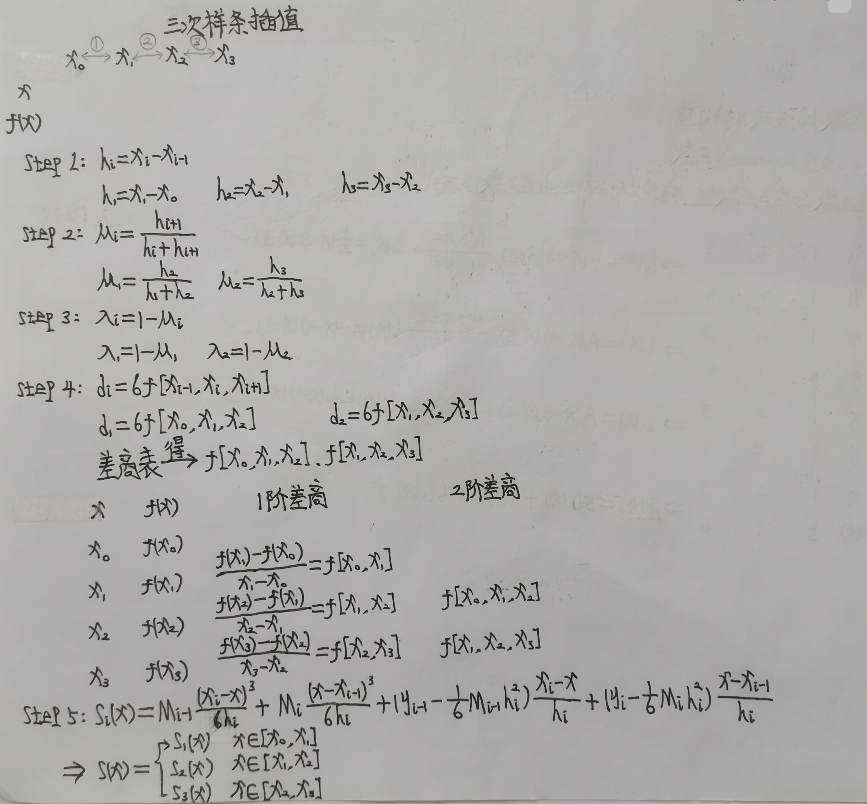 三次样条插值
x₀ ①↔ x₁ ②↔ x₂ ③↔ x₃
x
f(x)
Step 1: hi=xi-xi-1
h₁=x₁-x₀ h₂=x₂-x₁ h₃=x₃-x₂
Step 2: μi=hi+1/(hi+hi+1)
μ₁=h₂/(h₁+h₂) μ₂=h₃/(h₂+h₃)
Step 3: λi=1-μi
λ₁=1-μ₁ λ₂=1-μ₂
Step 4: di=6f[xi-1,xi,xi+1]
d₁=6f[x₀,x₁,x₂] d₂=6f[x₁,x₂,x₃]
差商表 得→ f[x₀,x₁,x₂]、f[x₁,x₂,x₃]
x f(x) 1阶差商 2阶差商
x₀ f(x₀)
x₁ f(x₁) (f(x₁)-f(x₀))/(x₁-x₀)=f[x₀,x₁]
x₂ f(x₂) (f(x₂)-f(x₁))/(x₂-x₁)=f[x₁,x₂] f[x₀,x₁,x₂]
x₃ f(x₃) (f(x₃)-f(x₂))/(x₃-x₂)=f[x₂,x₃] f[x₁,x₂,x₃]
Step 5: Si(x)=Mi-1 (xi-x)³/6hi + Mi (x-xi-1)³/6hi + (yi-1 - 1/6 Mi-1hi²) (xi-x)/hi + (yi - 1/6 Mihi²) (x-xi-1)/hi
⇒ S(x)= { S₁(x) x∈[x₀,x₁]
S₂(x) x∈[x₁,x₂]
S₃(x) x∈[x₂,x₃]